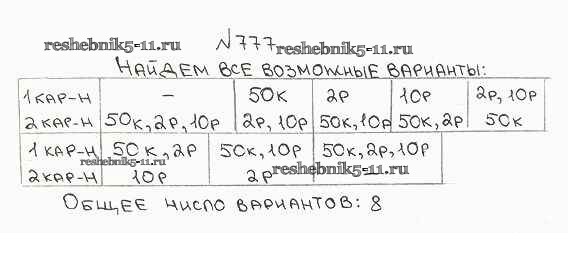 reshebnik5-11.ru №777 reshebnik5-11.ru
НАЙДЕМ ВСЕ ВОЗМОЖНЫЕ ВАРИАНТЫ:
1 КАР-Н – 50К 2Р 10Р 2Р, 10Р
2 КАР-Н 50К, 2Р, 10Р 2Р, 10Р 50К, 10Р 50К, 2Р 50К
1 КАР-Н 50К, 2Р 50К, 10Р 50К, 2Р, 10Р
reshebnik5-11.ru
2 КАР-Н 10Р 2Р reshebnik5-11.ru
ОБЩЕЕ ЧИСЛО ВАРИАНТОВ: 8